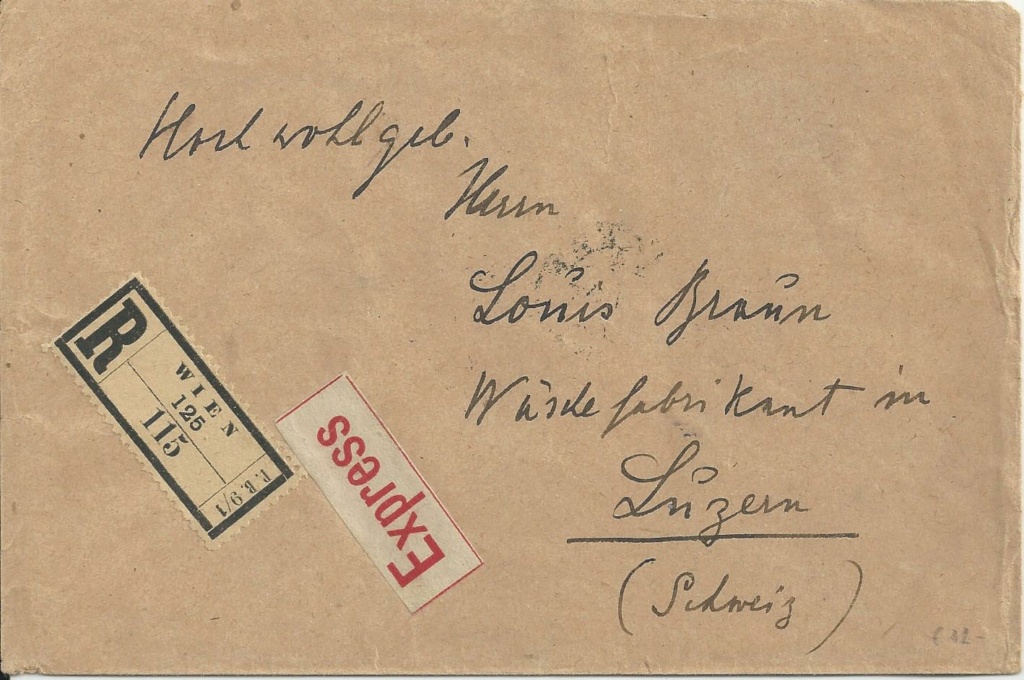 Hochwohlgeb.
Herrn
Louis Braun
Wäschefabrikant in
Luzern
(Schweiz)
R
WIEN
125
115
P. B. 9/1
Express